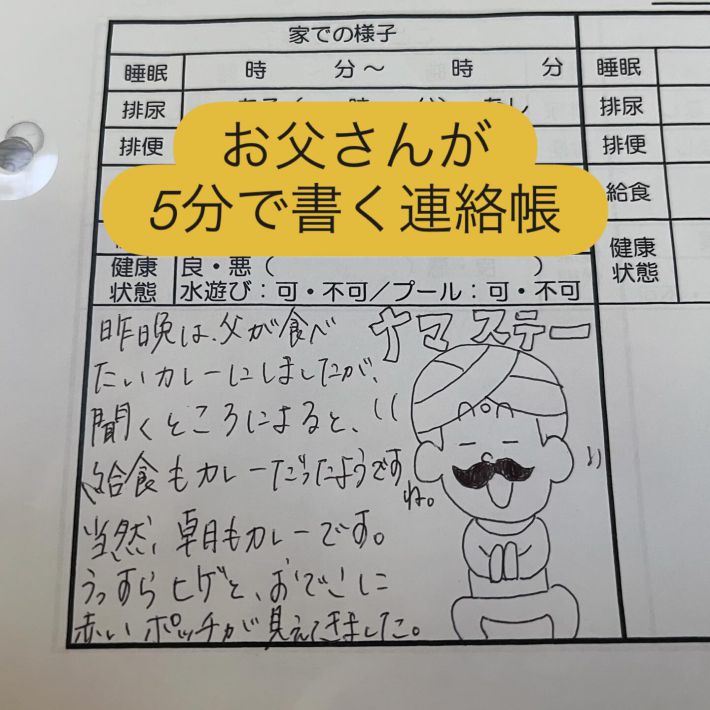 家での様子
睡眠 時 分～ 時 分 睡眠
排尿 排尿
排便 排便
お父さんが
5分で書く連絡帳
給食
健康状態 良・悪（ ） 健康状態
水遊び：可・不可/プール：可・不可
ナマステー
昨晩は、父が食べ
たいカレーにしましたが、
聞くところによると、
給食もカレーだったようです
ね。
当然、朝もカレーです。
うっすらヒゲと、おでこに
赤いポッチが見えてきました。